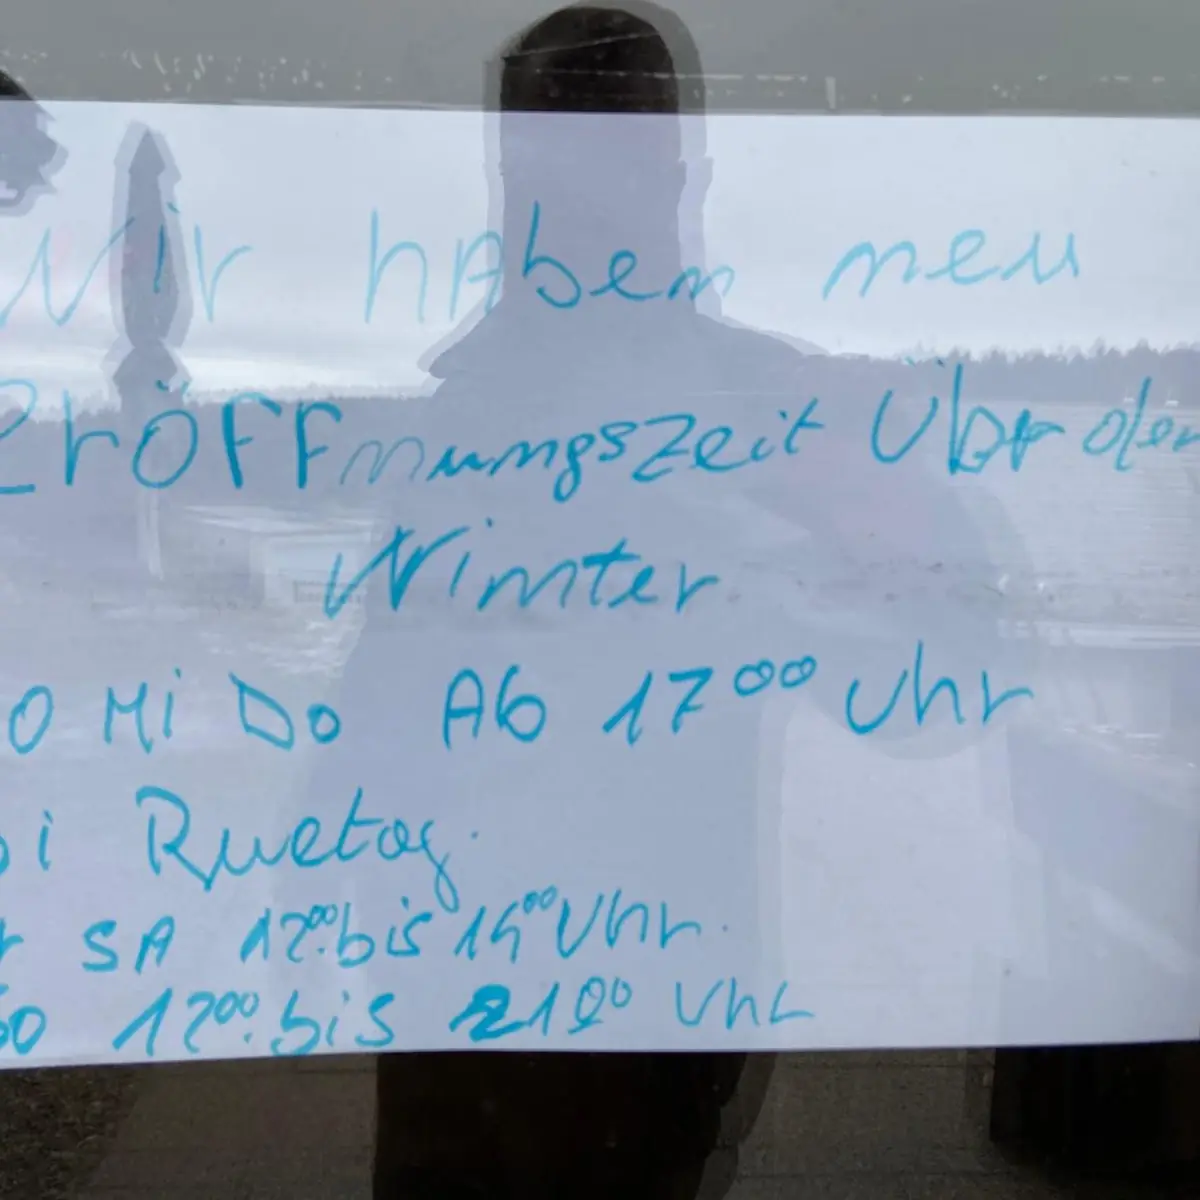 Wir hAben neu
eröFFnungszeit Über den
Winter
O Mi Do Ab 17 00 Uhr
i Ruetag.
SA 12 00. bis 14 00 Uhr.
So 12 00. bis 21 00 Uhr